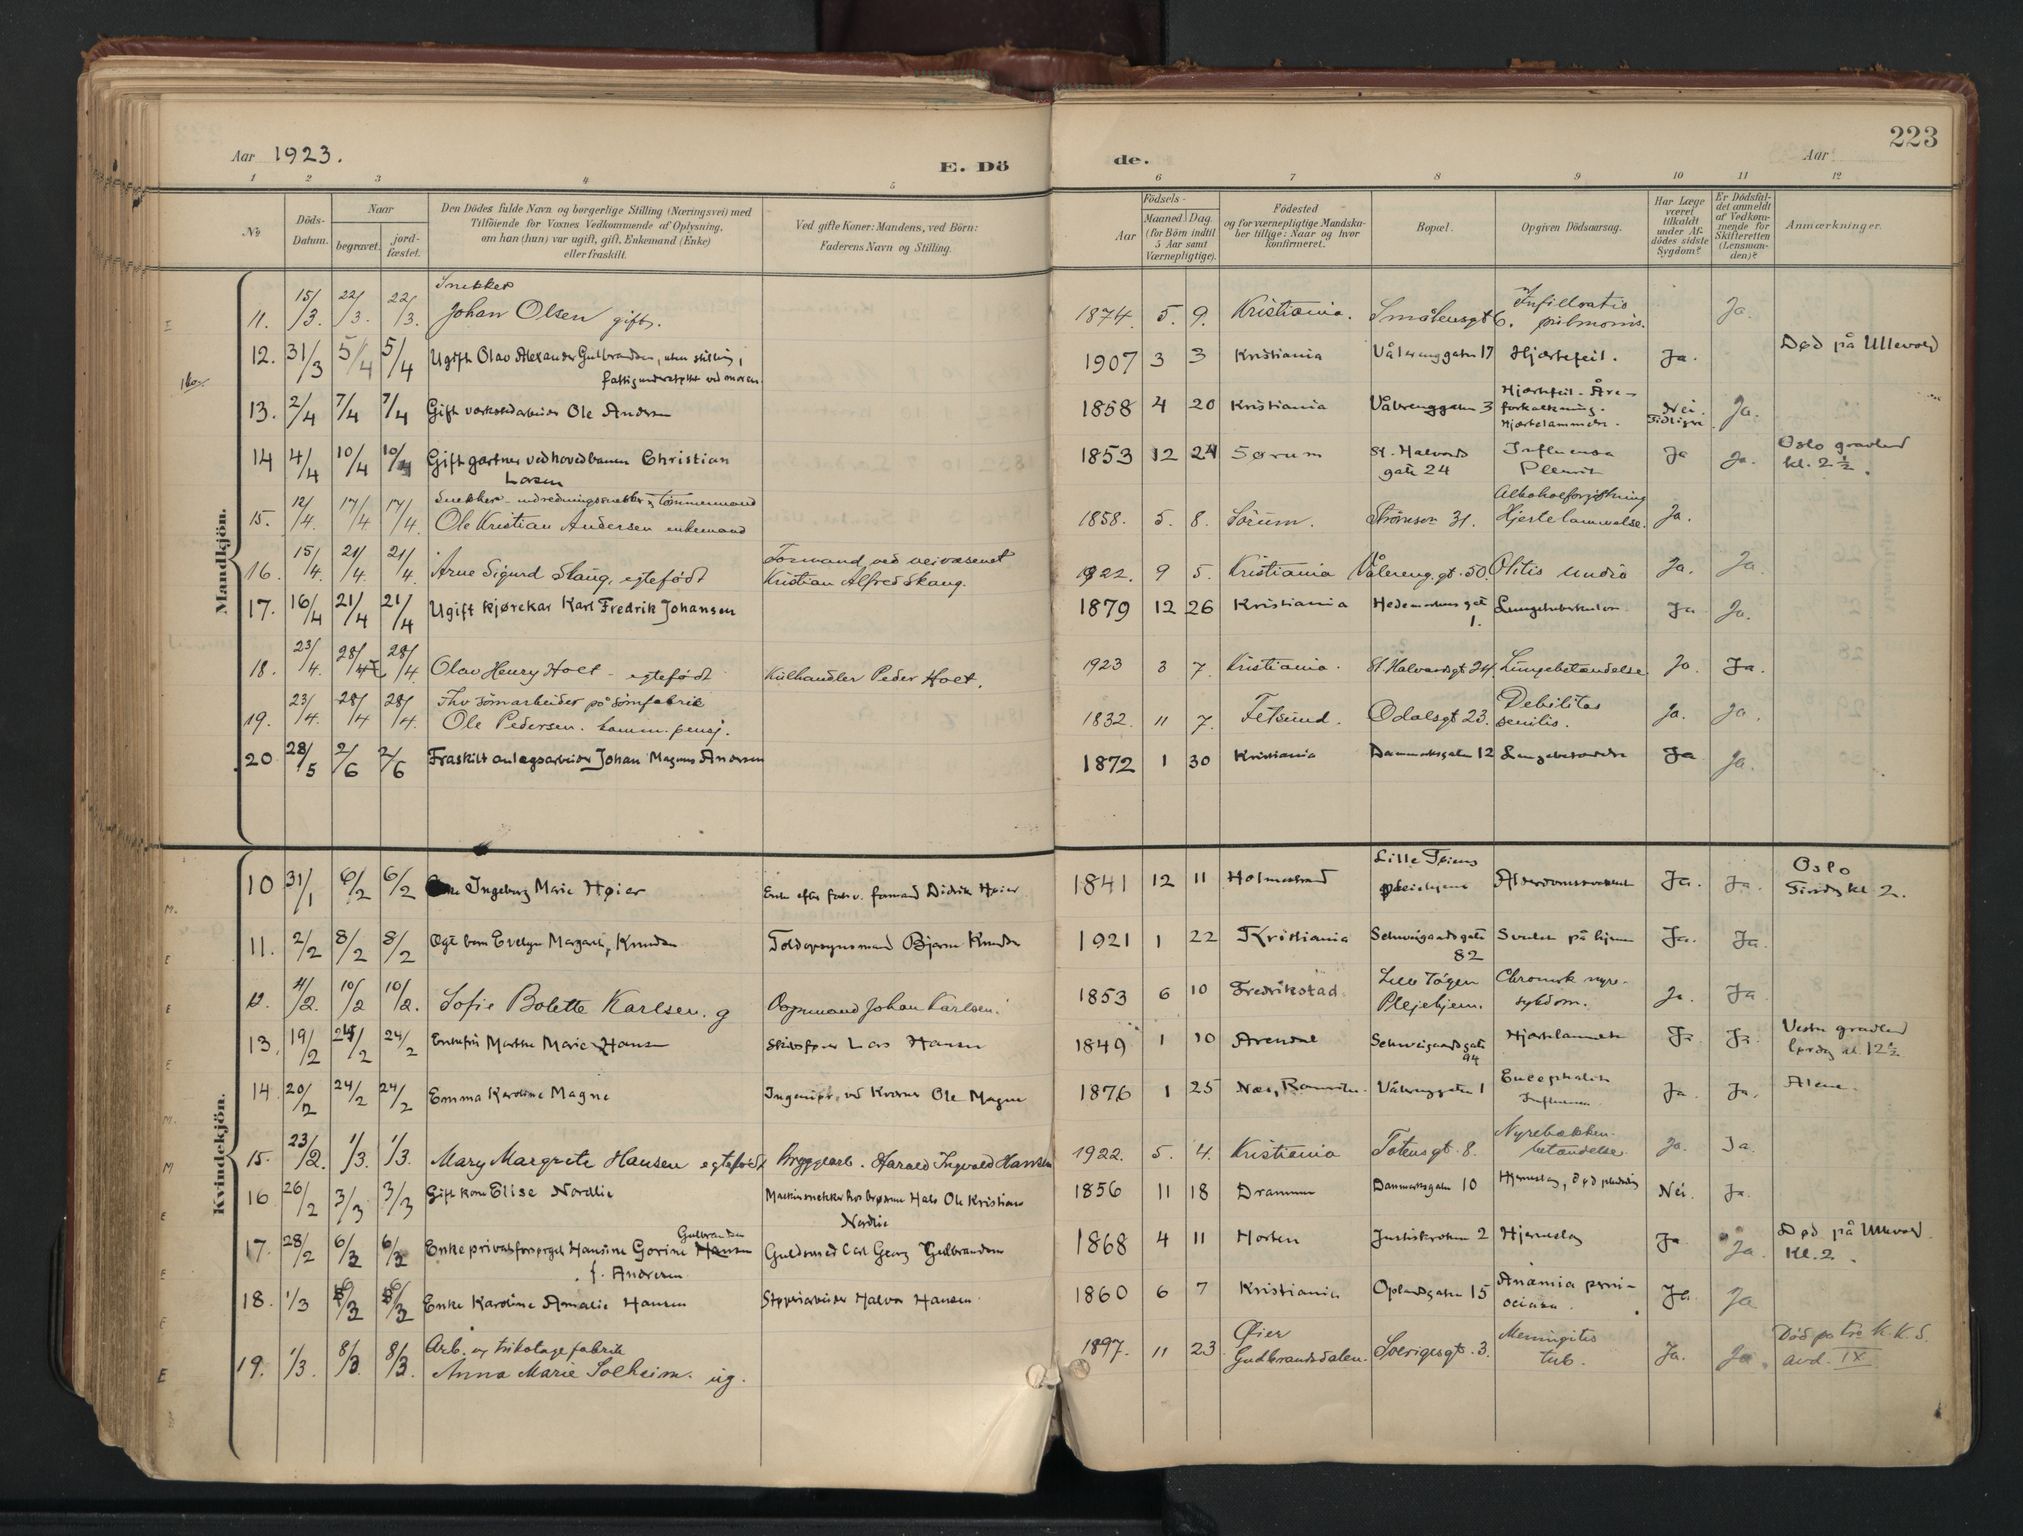 Aar 1923. E. Dö de. Aar 223
1 2 3 4 5 6 7 8 9 10 11 12
No
Döds-Datum.
Naar
begravet.
jord-fæstet.
Den Dödes fulde Navn og borgerlige Stilling (Næringsvei) med
Tilföiende for Voxnes Vedkommende af Oplysning,
om han (hun) var ugift, gift, Enkemand (Enke)
eller fraskilt.
Ved gifte Koner: Mandens, ved Börn:
Faderens Navn og Stilling.
Födsels-
Aar
Maaned Dag
(for Börn indtil
5 Aar samt
Værnepligtige).
Födested
og for værnepligtige Mandska-
ber tillige: Naar og hvor
konfirmeret.
Bopæl.
Opgiven Dödsaarsag.
Har Læge
været
tilkaldt
under Af-
dödes sidste
Sygdom?
Er Dödsfal-
det anmeldt
af Vedkom-
mende for
Skifteretten
(Lensman-
den)?
Anmærkninger.
Mandkjön.
Snekker
11. 15/3. 22/3. 22/3. Johan Olsen gift. 1874. 5. 9. Kristiania. Smålensgt 6. Infiltratio pulmonis. Ja.
12. 31/3 5/4 5/4 Ugift Olav Alexander Gulbrandsen, uten stilling, 1907 3 3 Kristiania Vålerenggaten 17 Hjertefeil. Ja. Død på Ullevold
fattigunderstøttet ved moren.
13. 2/4 7/4 7/4 Gift verkstedarbeider Ole Andersen 1858 4 20 Kristiania Vålerenggaten 3 Hjertefeil. Åre-
forkalkning. Hjertelammelse. Nei. Tidligere Ja.
14 4/4 10/4 10/4 Gift gartner ved hovedbanen Christian 1853 12 24 Sørum St. Halvards gate 24 Influensa Pleurit Ja Ja. Oslo gravlund
Larsen kl. 2½.
Snekker - indredningssnekker & tømmermand
15. 12/4. 17/4 17/4 Ole Kristian Andersen enkemand 1858. 5. 8. Sörum. Strömsvn 31. Alkoholforgiftning
Hjertelammelse. Ja.
16. 15/4. 21/4. 21/4. Arne Sigurd Skaug, egtefødt Formand ved veivæsenet
Kristian Alfred Skaug. 1922. 9 5. Kristiania Vålereng. gt. 50. Otitis media Ja. Ja.
17. 16/4 21/4 21/4 Ugift kjørekar Karl Fredrik Johansen 1879 12 26 Kristiania Hedemarkens gt 1. Lungetuberkulose Ja Ja.
18. 23/4. 28/4 28/4 Olav Henry Holt - egtefødt Kulhandler Peder Holt. 1923 3 7. Kristiania. St. Halvardsgt 24. Lungebetændelse Ja. Ja.
19. 23/4. 28/4 28/4. Fhv sömarbeider på sömfabrik
Ole Pedersen. komm. pensj. 1832. 11 7. Fetsund. Odalsgt 23. Debilitas senilis. Ja. Ja.
20 28/5 2/6 2/6 Fraskilt anlegsarbeider Johan Magnus Andersen 1872 1 30 Kristiania Danmarksgaten 12 Lungebetændelse Ja Ja.
Kvindekjön.
10 31/1 6/2 6/2 Ingeborg Marie Høier Enke efter forh.v. formand Didrik Høier 1841 12 11 Holmestrand Lille Tøiens pleiehjem Alderdomssvakhet Ja. Ja. Oslo
Tirsdag kl 2.
11. 2/2 8/2 8/2 Egte barn Evelyn Margareth Knudsen Toldopsynsmand Bjarne Knudsen 1921 1 22 Kristiania Schweigaardsgate 82 Svulst på hjernen Ja. Ja.
12. 4/2. 10/2 10/2. Sofie Bolette Karlsen. g Oppsynsmand Johan Karlsen. 1853 6 10 Fredrikstad Lille Töyen Plejehjem. Chronisk nyre-
sykdom. Ja. Ja.
13. 19/2 24/2 24/2 Enkefru Marthe Marie Hansen Skibsfører Lars Hansen 1849 1 10 Arendal Schweigaardsgate 94 Hjertelammelse Ja Ja. Vestre gravlund
lørdag kl. 12½
14. 20/2 24/2 24/2 Emma Karoline Magne Ingeniør ved Kværner Ole Magne 1876 1 25 Nes, Romerike. Vålerenggaten 1 Encephalitis
Influensa Ja. Ja. Alene.
15. 23/2. 1/3. 1/3. Mary Margrete Hansen egtefødt Bryggearb. Harald Ingvald Hansen 1922. 5. 4. Kristiania Totensgt. 8. Nyrebækken-
betændelse Ja. Ja.
16 26/2 3/3 3/3 Gift kone Elise Nordlie Maskinsnekker hos brødrene Hals Ole Kristian
Nordlie 1856 11 18 Drammen Danmarksgaten 10 Hjerneslag, død pludselig Nei. Ja.
17. 28/2 6/3 6/3 Enke privatforsørget Hansine Gorine Hansen Gulbrandsen
f. Andersen Guldsmed Carl Georg Gulbrandsen 1868 4 11 Horten Justiskroken 2 Hjerneslag Ja Ja. Død på Ullevold.
Kl. 2.
18. 1/3 6/3 6/3 Enke Karoline Amalie Hansen Støperiarbeider Halvor Hansen 1860 6 7 Kristiania Oplandsgaten 15 Anæmia perni-
ciosa. Ja Ja
19. 1/3. 8/3. 8/3. Arb. v. trikotagefabrik
Anna Marie Solheim. ug. 1897. 11 23. Øier
Gudbrandsdalen. Sverigesgt. 3. Meningitis
tub. Ja. Ja. Död på K. K. S.
avd. IX